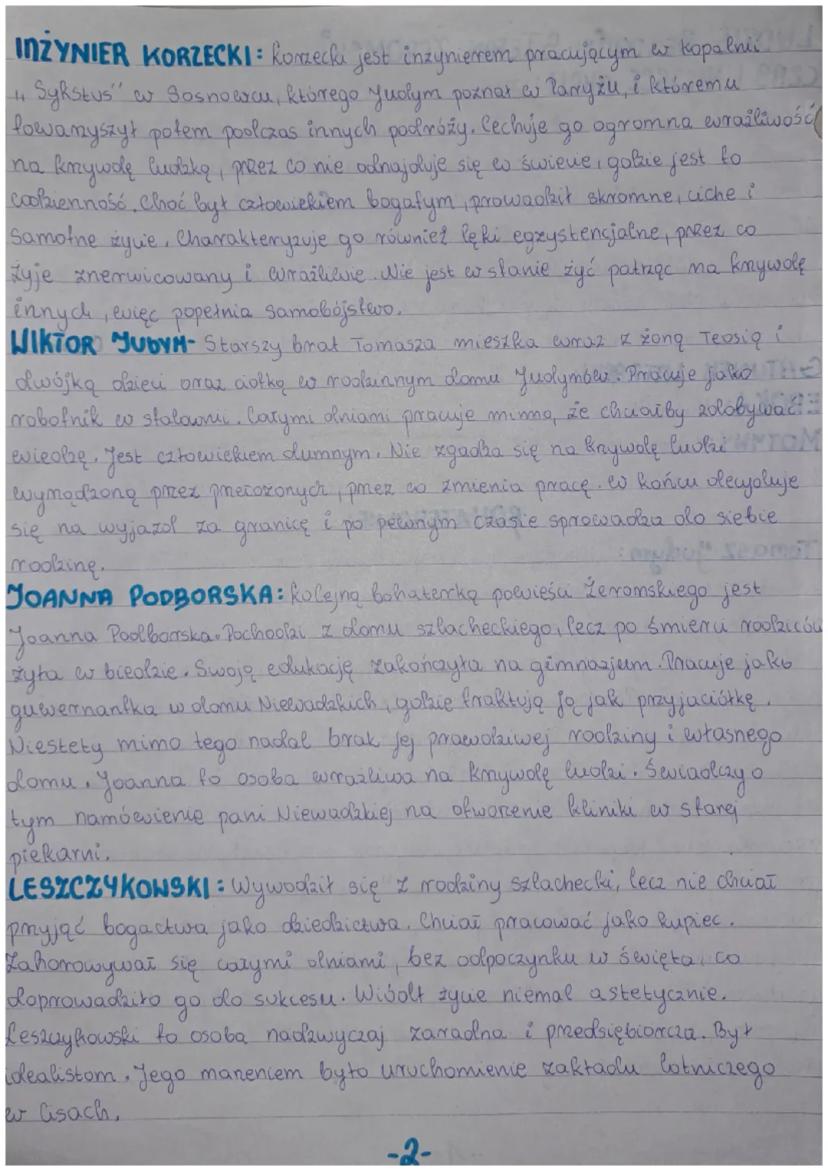 INŻYNIER KORZECKI: Korzecki jest inżynierem pracującym w kopalni
"Sykstus" w Sosnowcu, którego Judym poznał w Paryżu, i któremu
towarzyszył potem podczas innych podróży. Cechuje go ogromna wrażliwość
na krzywdę ludzką, przez co nie odnajduje się w świecie, gdzie jest to
codzienność. Choć był człowiekiem bogatym, prowadził skromne, ciche i
samotne życie. Charakteryzuje go również lęki egzystencjalne, przez co
żyje znerwicowany i wrażliwie. Nie jest w stanie żyć patrząc na krzywdę
innych, więc popełnia samobójstwo.
WIKTOR JUDYM- Starszy brat Tomasza mieszka wraz z żoną Teosią i
dwójką dzieci oraz ciotką w rodzinnym domu Judymów. Pracuje jako
robotnik w stalowni. Całymi dniami pracuje mimo, że chciałby zdobywać
wiedzę. Jest człowiekiem dumnym. Nie zgadza się na krzywdę ludzi
wyrządzoną przez przełożonych, przez co zmienia pracę. W końcu decyduje
się na wyjazd za granicę i po pewnym czasie sprowadza do siebie
rodzinę.
JOANNA PODBORSKA: Kolejną bohaterką powieści Żeromskiego jest
Joanna Podborska. Pochodzi z domu szlacheckiego, lecz po śmierci rodziców
żyła w biedzie. Swoją edukację zakończyła na gimnazjum. Pracuje jako
guwernantka w domu Niewadzkich, gdzie traktują ją jak przyjaciółkę.
Niestety mimo tego nadal brak jej prawdziwej rodziny i własnego
domu. Joanna to osoba wrażliwa na krzywdę ludzi. Świadczy o
tym namówienie pani Niewadzkiej na otworzenie kliniki w starej
piekarni.
LESZCZYKOWSKI: Wywodził się z rodziny szlachecki, lecz nie chciał
przyjąć bogactwa jako dziedzictwa. Chciał pracować jako kupiec.
Zaharowywał się całymi dniami, bez odpoczynku w święta, co
doprowadziło go do sukcesu. Wiódł życie niemal astetycznie.
Leszczykowski to osoba nadzwyczaj zaradna i przedsiębiorcza. Był
idealistom. Jego marzeniem było uruchomienie zakładu lotniczego
w Cisach.
-2-